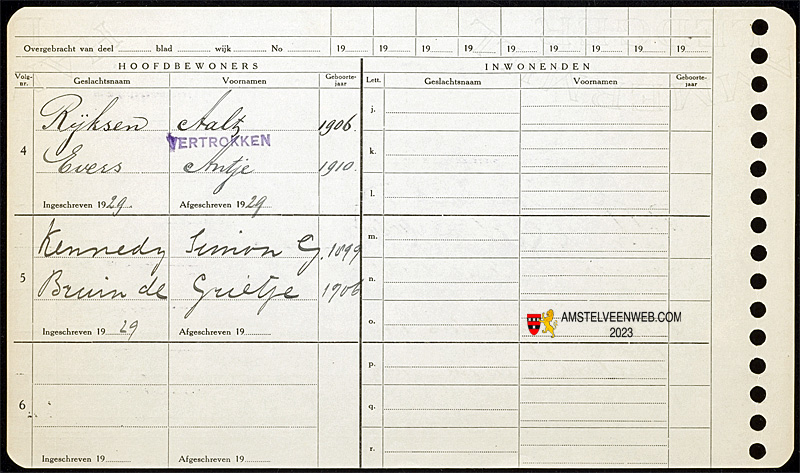 Overgebracht van deel ........ blad ........ wijk ........ No ........ 19.... 19.... 19.... 19.... 19.... 19.... 19.... 19.... 19....
HOOFDBEWONERS INWONENDEN
Volg-nr. Geslachtsnaam Voornamen Geboorte-jaar Lett. Geslachtsnaam Voornamen Geboorte-jaar
Rijksen Aalt 1906. j.
VERTROKKEN
4 k.
Evers Antje 1910.
l.
Ingeschreven 1929. Afgeschreven 1929
Kennedy Simon G. 1899 m.
5 n.
Bruin de Grietje 1906
o. AMSTELVEENWEB.COM
2023
Ingeschreven 19 29 Afgeschreven 19........
p.
6 q.
r.
Ingeschreven 19........ Afgeschreven 19........